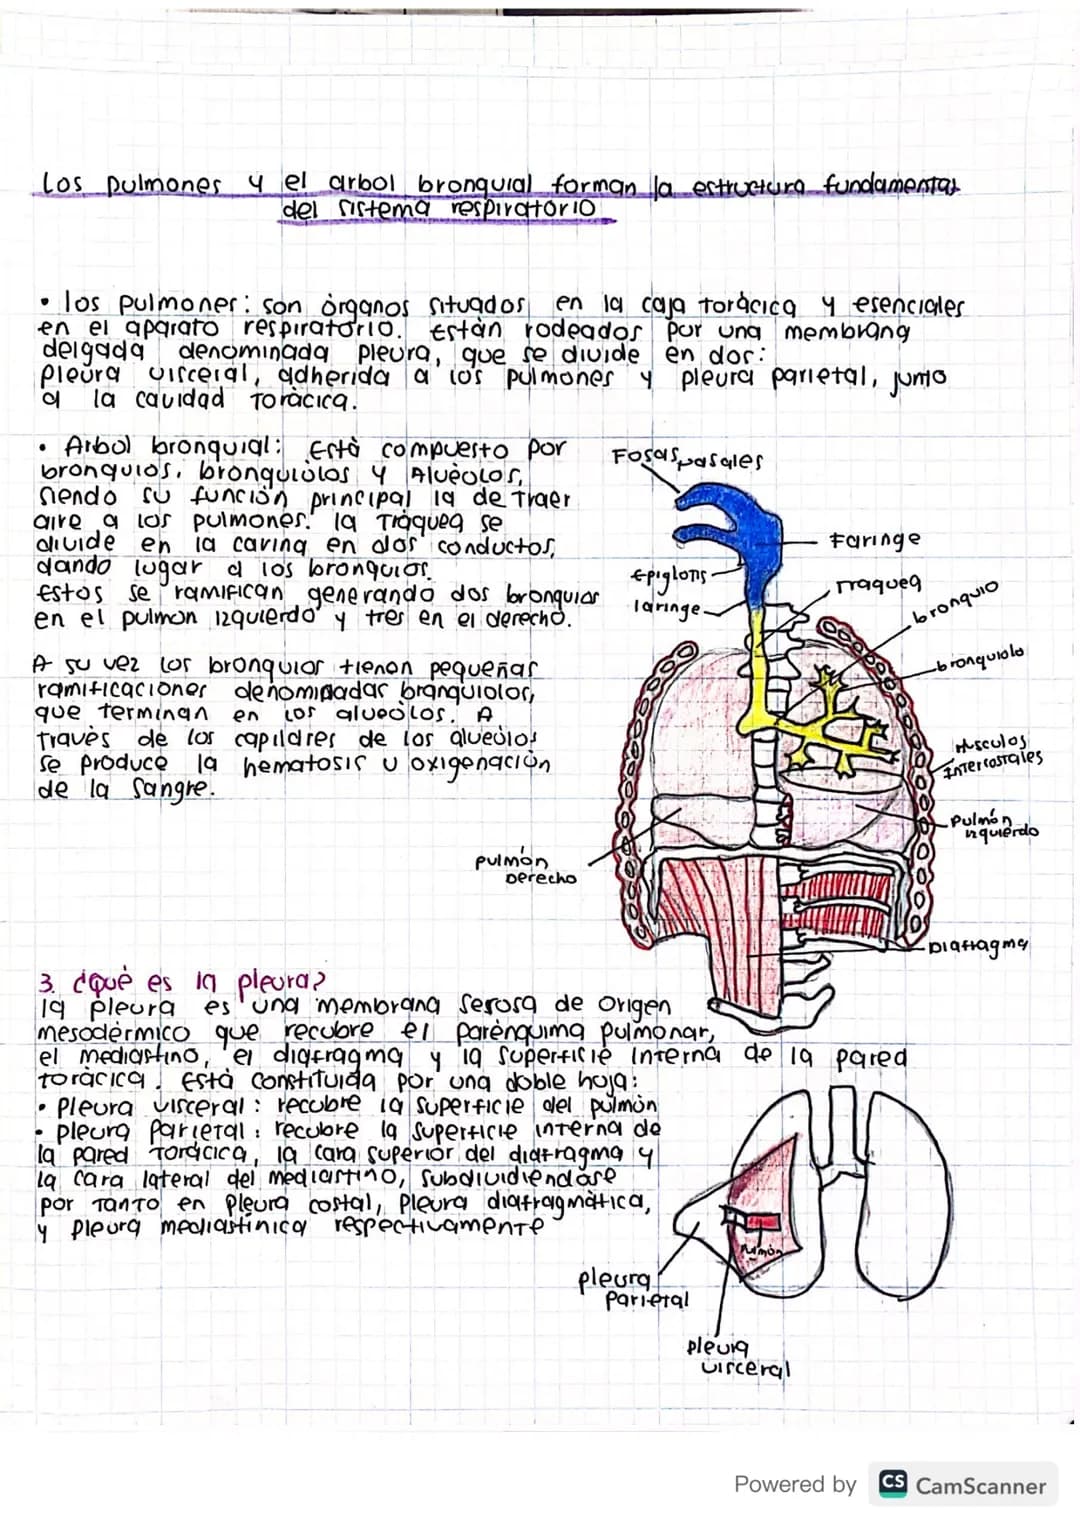 Los pulmones y el arbol bronquial forman la estructura fundamental
del sistema respiratorio
• los pulmones: son òrganos situados en la caja toràcica y esenciales
en el aparato respiratorio. Estàn rodeados por una membrana
delgada denominada pleura, que se divide en dos:
pleura visceral, adherida a los pulmones y pleura parietal, junto
a la cavidad toràcica.
• Arbol bronquial: Està compuesto por
bronquios, bronquiòlos y Alvèolos,
siendo su funciòn principal la de traer
aire a los pulmones. la Tràquea se
divide en la carina en dos conductos,
dando lugar a los bronquios.
Estos se ramifican generando dos bronquios
en el pulmon izquierdo y tres en el derecho.
A su vez los bronquios tienen pequeñas
ramificaciones denominadas branquiolos,
que terminan en los alveòlos. A
travès de los capilares de los alveòlos
se produce la hematosis u oxigenaciòn
de la sangre.
Fosas nasales
Faringe
Epiglotis
laringe
Traquea
bronquio
bronquiolo
Musculos
Intercostales
Pulmòn
izquierdo
pulmòn
Derecho
Diafragma
3. ¿Què es la pleura?
la pleura es una membrana serosa de origen
mesodèrmico que recubre el parènquima pulmonar,
el mediastino, el diafragma y la superficie interna de la pared
toràcica. Està constituida por una doble hoja:
• Pleura visceral: recubre la superficie del pulmòn
• pleura Parietal: recubre la superficie interna de
la pared Toràcica, la cara superior del diafragma y
la cara lateral del mediastino, subdividiendose
por tanto en Pleura costal, Pleura diafragmàtica,
y pleura mediastinica respectivamente
Pulmòn
pleura
Parietal
pleura
visceral
Powered by CS CamScanner